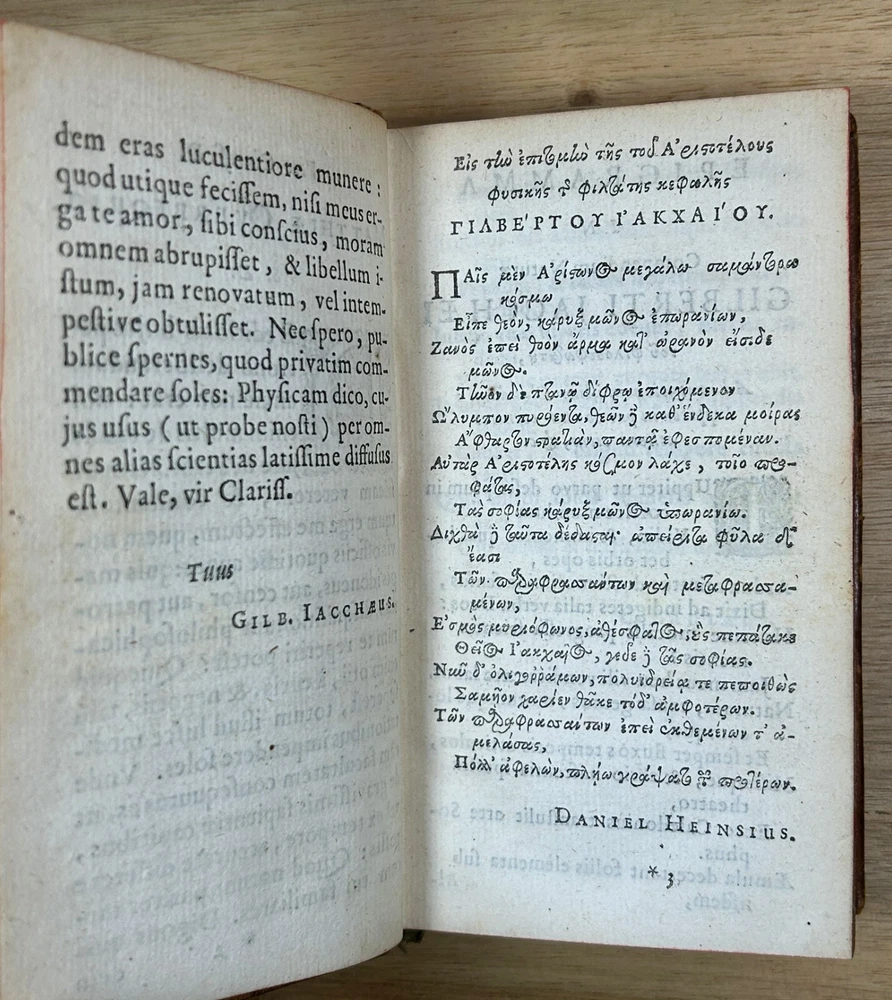 dem eras luculentiore munere :
quod utique fecissem, nisi meus er-
ga te amor, sibi conscius, moram
omnem abrupisset, & libellum i-
stum, jam renovatum, vel intem-
pestive obtulisset. Nec spero, pu-
blice spernes, quod privatim com-
mendare soles: Physicam dico, cu-
jus usus ( ut probe nosti ) per om-
nes alias scientias latissime diffusus
est. Vale, vir Clariss.
Tuus
GILB. IACCHÆUS.
Εἰς τὴν ἐπιτομὴν τῆς τοῦ Ἀριστοτέλους
φυσικῆς τ̃ φιλτάτης κεφαλῆς
ΓΙΛΒΕΡΤΟΥ ΙΑΚΧΑΙΟΥ.
ΠΑῖς μὲν Ἀρίστων⊕ μεγάλω σαμάντορα
κόσμω
Εἶπε θεὸν, κάρυξ μῶν⊕ ἐπωρανίων,
Ζανὸς ἐπεὶ θοὸν ἅρμα κατ' ὠρανὸν εἴσιδε
μῶν⊕.
Τῶον δὲ πτανῷ δίφρῳ ἐποιχόμενον
Ὤλυμπον πυρόεντα, θεῶν ἢ καθ' ἕνδεκα μοίρας
Ἄφθαρτον στρατιὰν, παντᾷ ἐφεσπομέναν.
Αὐτὰρ Ἀριστοτέλης κόσμον λάχε, τοῖο προ-
φάτας,
Τᾶς σοφίας κάρυξ μῶν⊕ ὑπωρανίω.
Διχθὰ ἢ ταῦτα δέδασται· ἀπείριτα φῦλα δ'
ἔασι
Τῶν παραφρασσάντων καὶ μεταφρασσα-
μένων,
Ἑσμὸς μυριόφωνος, ἀθέσφατ⊕, ὃς πεπάτακε
Θεῖ⊕ Ἰακχαῖ⊕,
Νοῦ δ' ὀλιγορράμων, πολυϊδρείᾳ τε πεποιθὼς
Σαμῆον χαρίεν θῆκε τόδ' ἀμφοτέρων.
Τῶν παραφρασσάντων ἐπεὶ ἐκθεμένων τ' ἀ-
μελάσας,
Πόλλ' ἀφελὼν, πλήω γράψατο τ̃ προτέρων.
DANIEL HEINSIUS.
* 3